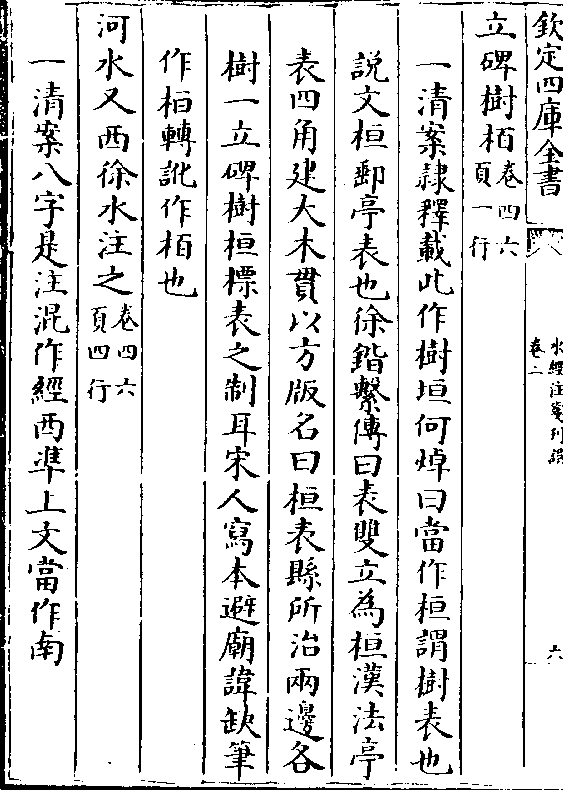 欽定四庫全書
水經注箋刊誤
卷二
六
立碑樹栢卷四六頁一行
一清案隷釋載此作樹垣何焯曰當作桓謂樹表也
説文桓郵亭表也徐鍇繫傳曰表雙立為桓漢法亭
表四角建大木貫以方版名曰桓表縣所治兩邊各
樹一立碑樹桓標表之制耳宋人寫本避廟諱缺筆
作栢轉訛作栢也
河水又西徐水注之卷四六頁四行
一清案八字是注混作經西準上文當作南